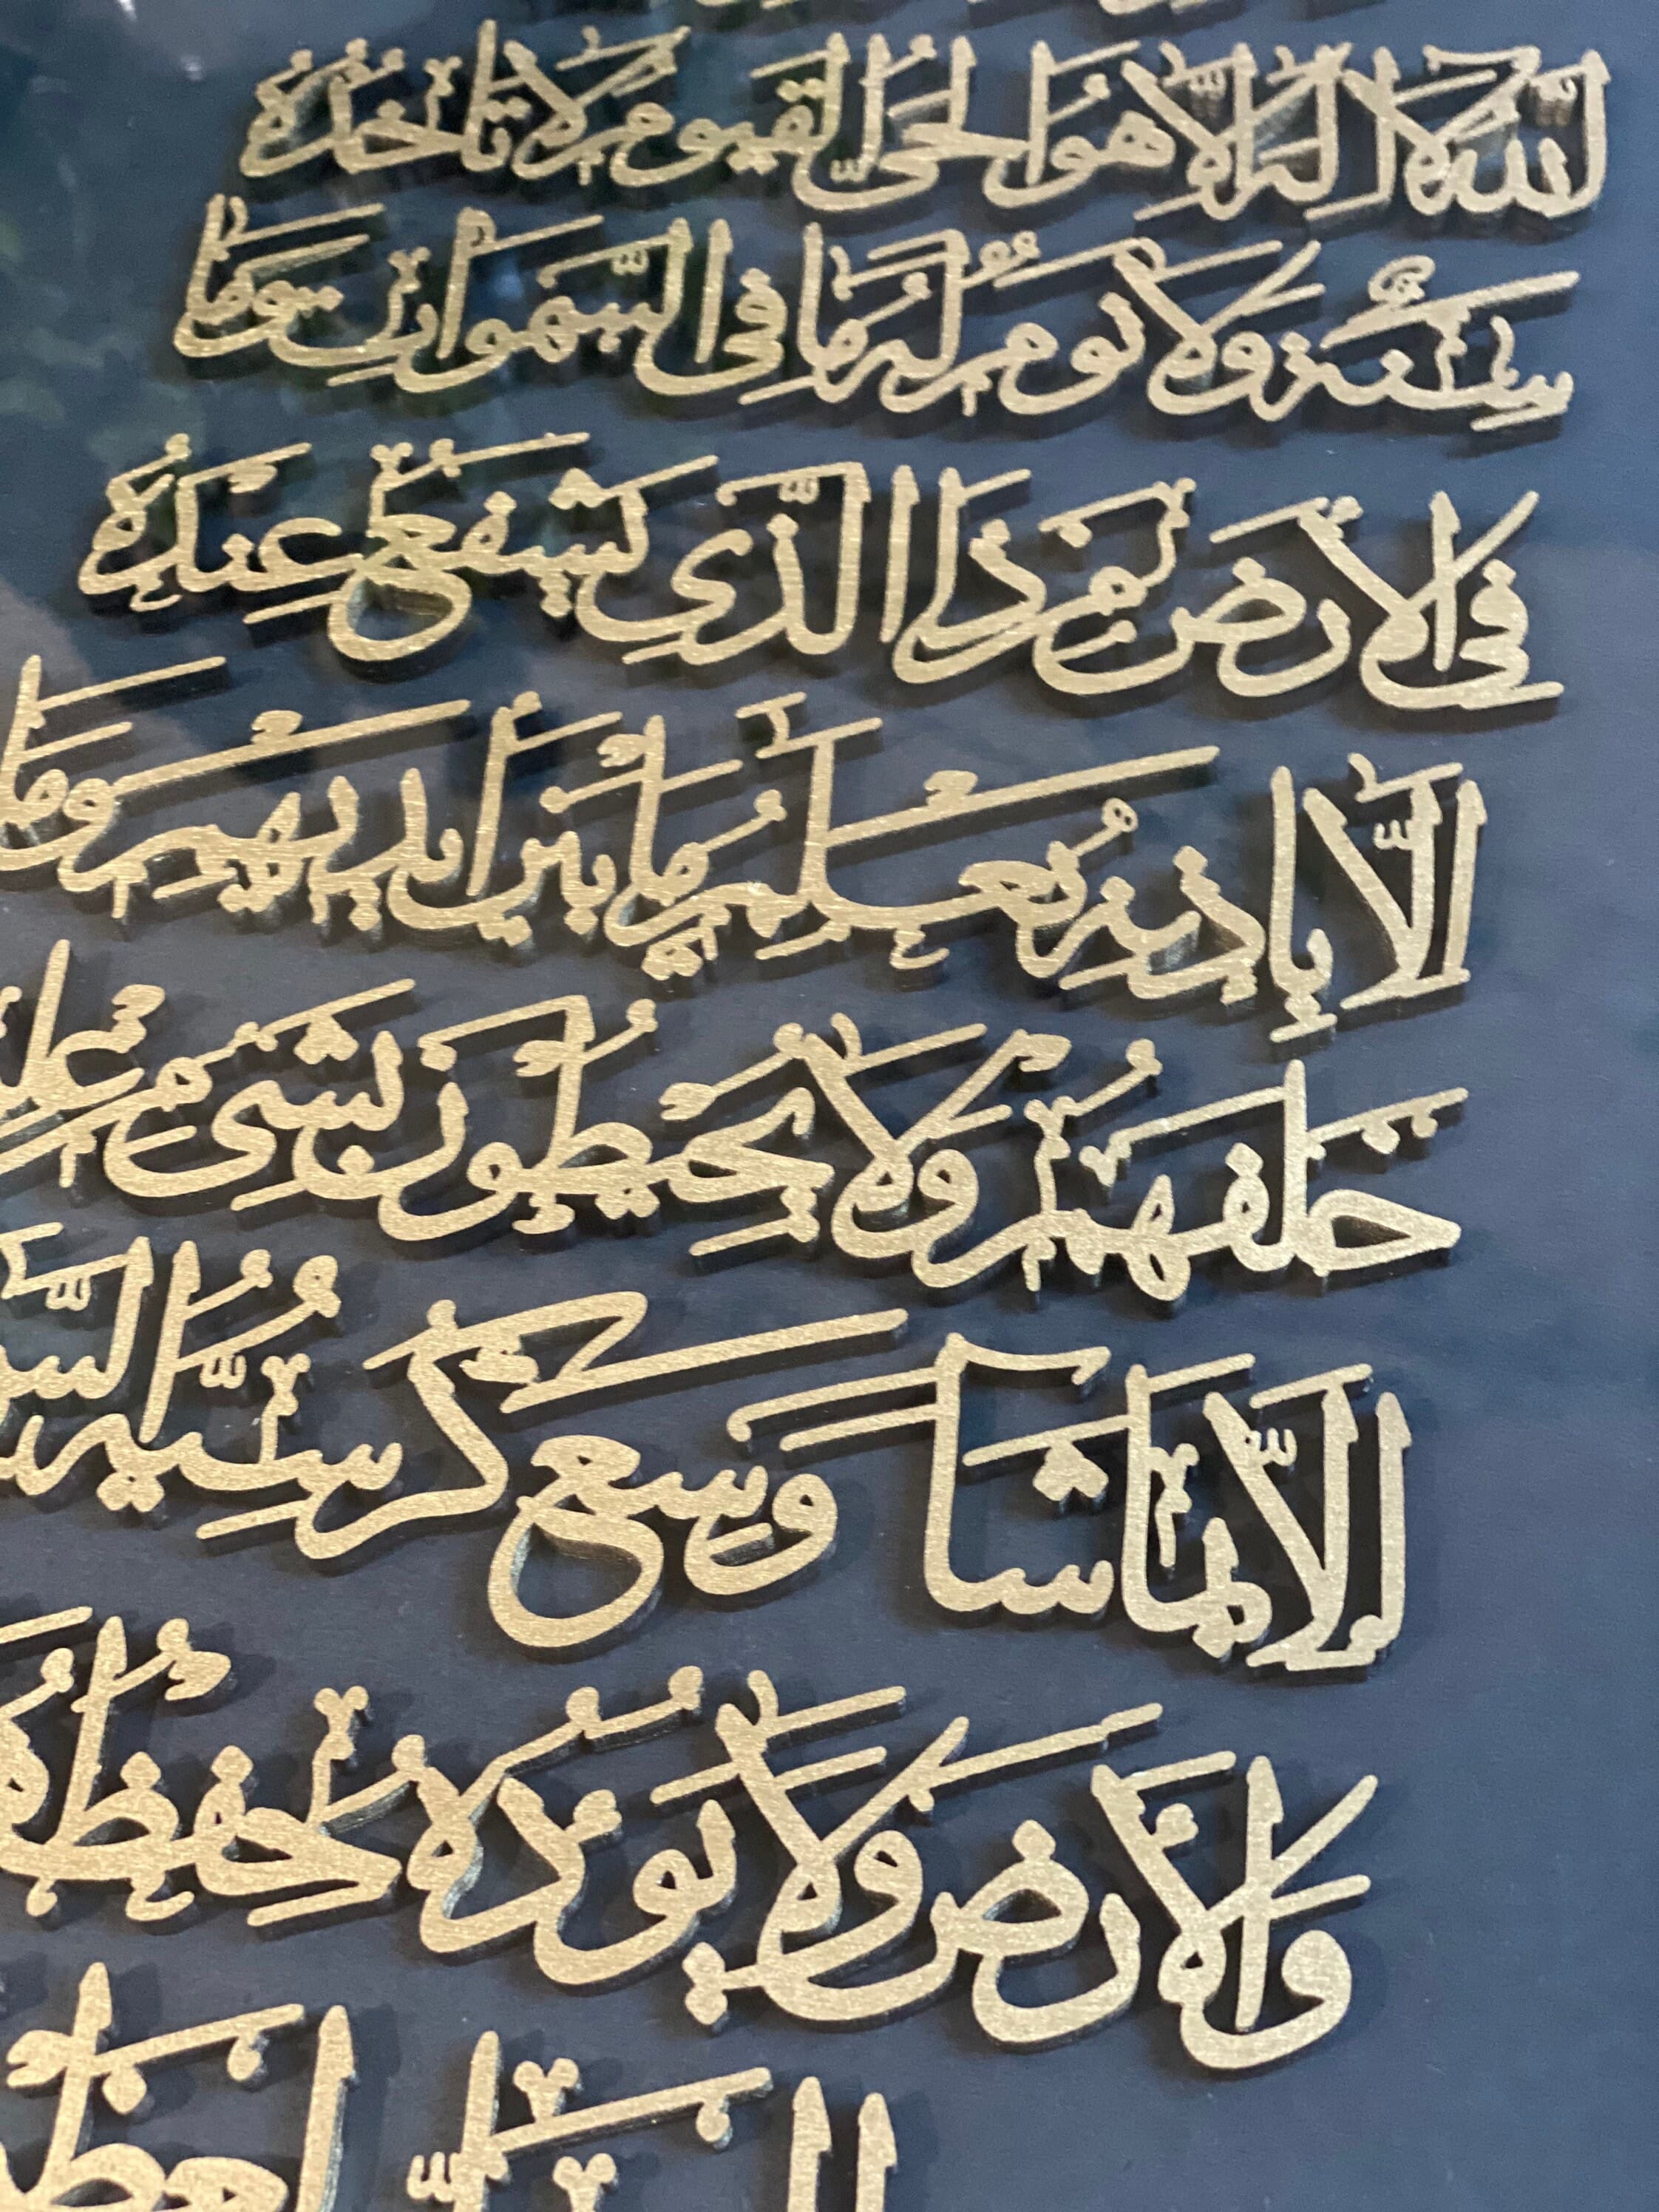 الله لا اله الا هو الحي القيوم لا تأخذه
سنة ولا نوم له ما في السموات وما
في الارض من ذا الذي يشفع عنده
الا باذنه يعلم ما بين ايديهم وما
خلفهم ولا يحيطون بشيء من علمه
الا بما شاء وسع كرسيه
والارض ولا يؤده حفظهما